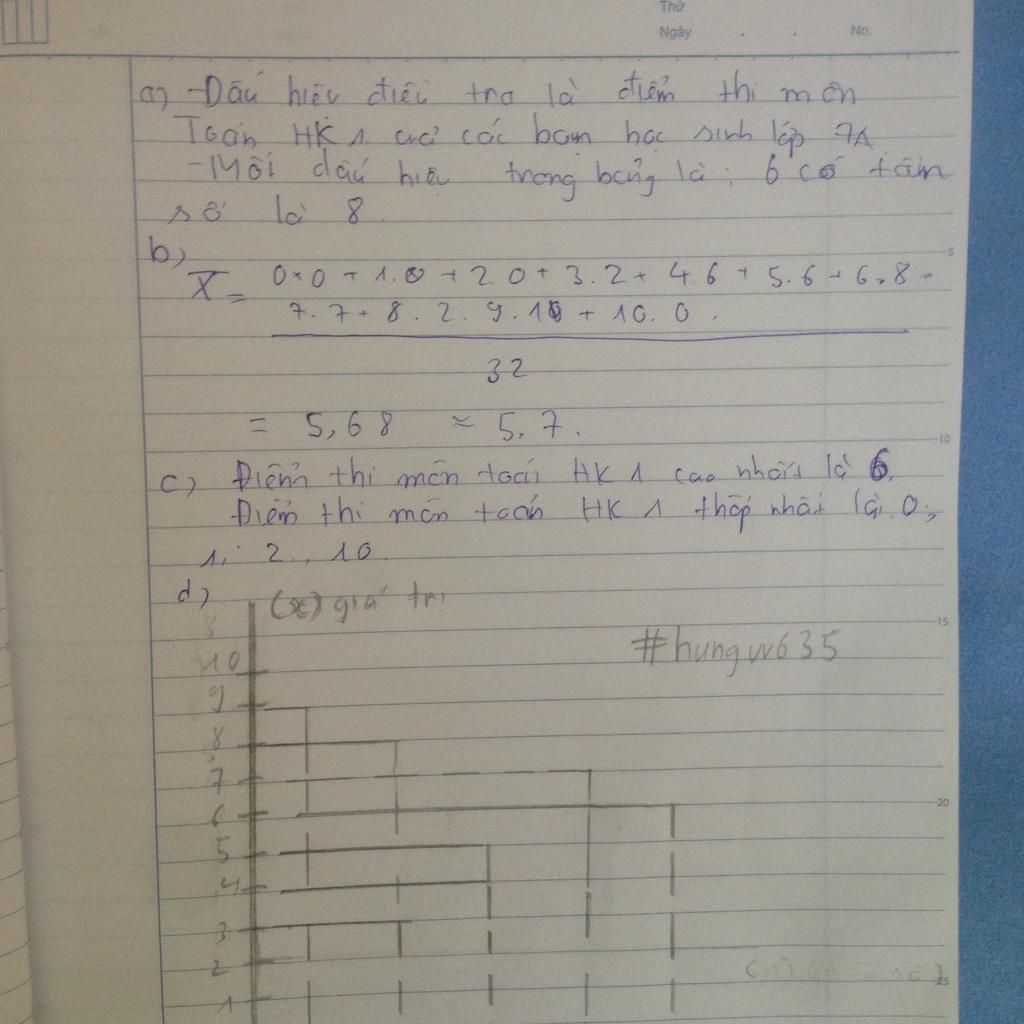 Thứ
Ngày . . No.
a) - Dấu hiệu điều tra là điểm thi môn
Toán HK 1 của các bạn học sinh lớp 7A
- Mốt dấu hiệu trong bảng là: 6 có tần
số là 8
b)
0.0 + 1.0 + 2.0 + 3.2 + 4.6 + 5.6 + 6.8 +
X̄ =
7.7 + 8.2. 9.1 + 10.0.
32
= 5,68 ≈ 5,7.
c) Điểm thi môn toán HK 1 cao nhất là 6.
Điểm thi môn toán HK 1 thấp nhất là 0;
1; 2., 10.
d) (x) giá trị
#hungvv635
10
9
8
7
6
5
4
3
2
(n)
1
5
10
15
20
25